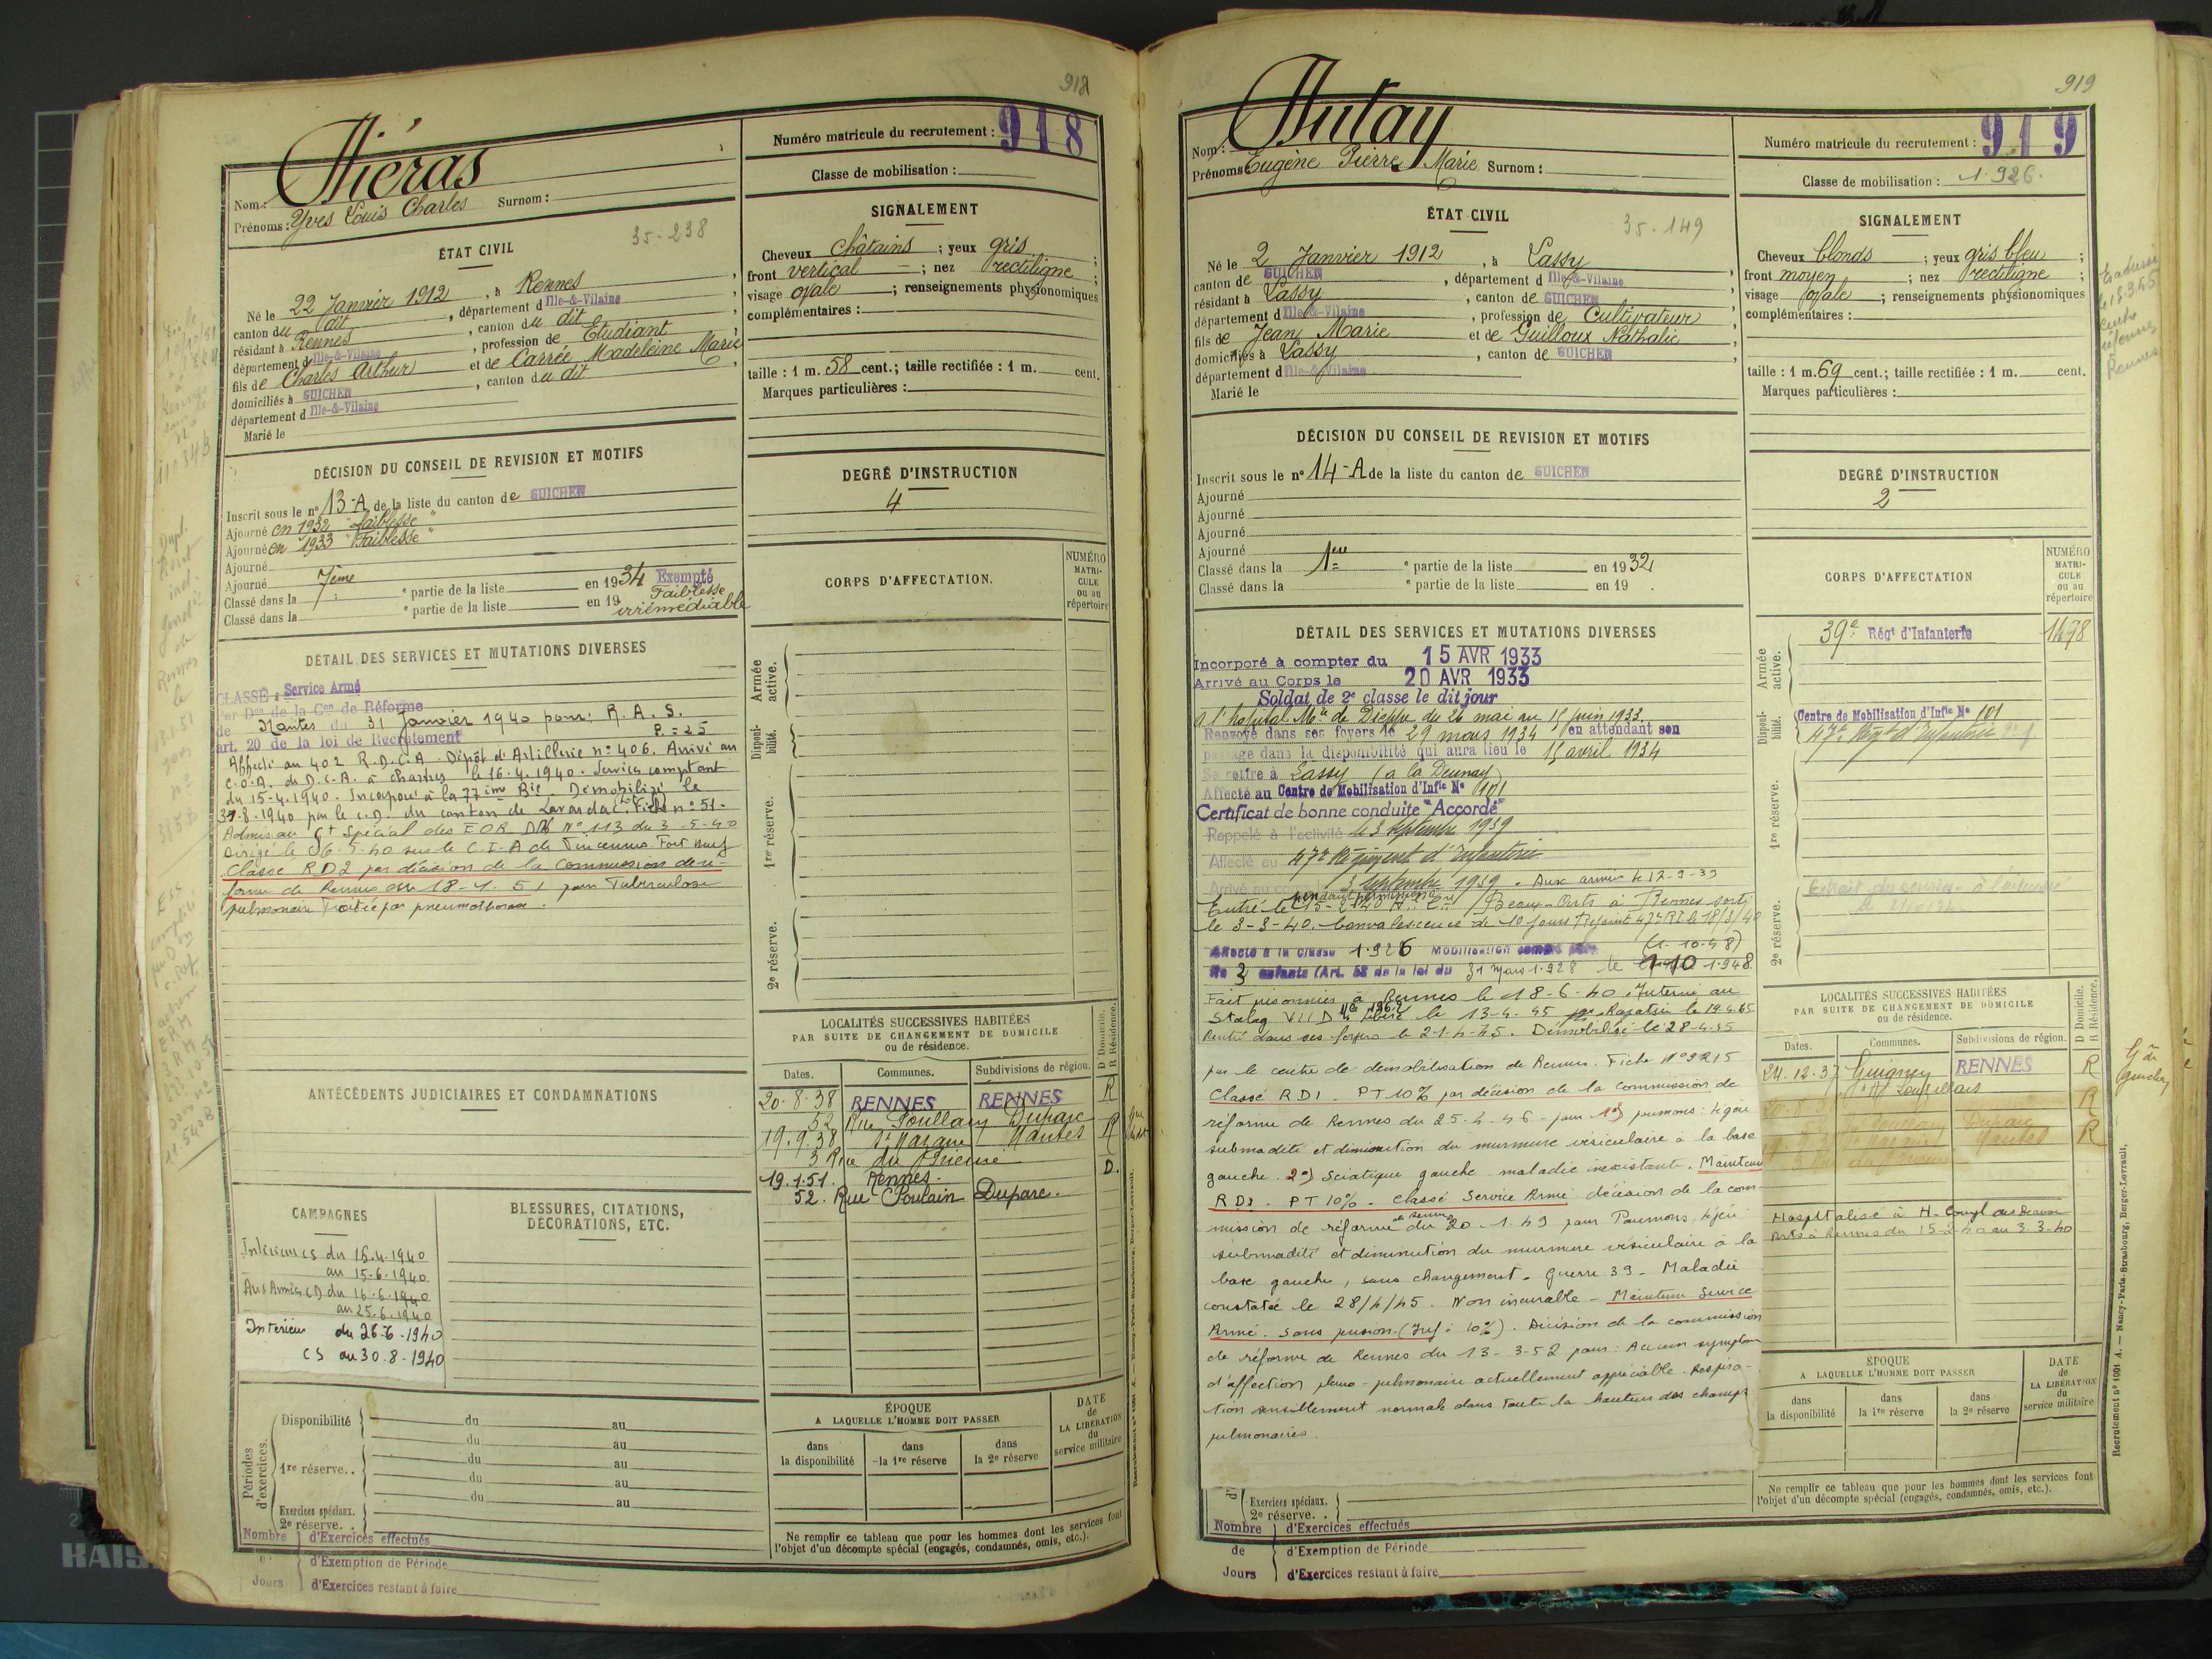 918
Numéro matricule du recrutement : 918
Classe de mobilisation :
Nom : Hiéras
Prénoms : Yves Louis Charles Surnom :
ÉTAT CIVIL
35-238
Né le 22 Janvier 1912, à Rennes,
canton du dit, département d Ille-&-Vilaine,
résidant à Rennes, canton du dit,
département d Ille-&-Vilaine, profession de Etudiant,
fils de Charles Arthur et de Carrée Madeleine Marie,
domiciliés à GUICHEN, canton du dit
département d Ille-&-Vilaine
Marié le
SIGNALEMENT
Cheveux châtains ; yeux gris ;
front vertical ; nez rectiligne ;
visage ovale ; renseignements physionomiques
complémentaires :
taille : 1 m. 58 cent.; taille rectifiée : 1 m. cent.
Marques particulières :
DÉCISION DU CONSEIL DE REVISION ET MOTIFS
Inscrit sous le n° 13-A de la liste du canton de GUICHEN
Ajourné en 1932 "faiblesse"
Ajourné en 1933 "Faiblesse"
Ajourné
Ajourné
Classé dans la 7ème ° partie de la liste en 1934 Exempté
Classé dans la ° partie de la liste en 19 Faiblesse irrémédiable
DEGRÉ D'INSTRUCTION
4
CORPS D'AFFECTATION.
NUMÉRO MATRICULE ou au répertoire
Armée active.
Disponibilité.
1re réserve.
2e réserve.
DÉTAIL DES SERVICES ET MUTATIONS DIVERSES
CLASSÉ Service Armé
Par Don de la Con de Réforme
de Nantes du 31 Janvier 1940 pour: R.A.S.
art. 20 de la loi de Recrutement P.=25
Affecté au 402 R.D.C.A. Dépôt d'Artillerie n° 406. Arrivé au
C.O.A. de D.C.A. à Chartres le 16.4.1940. Services comptant
du 15-4.1940. Incorporé à la 77ème Bie. Démobilisé le
31.8.1940 par le C.D. du canton de Lavardac. Fiche n° 51.
Admis au Ct Spécial des EOR DM N° 113 du 3-5-40
Dirigé le 06.5.40 sur le C.I.A de Vincennes Fort neuf
Classé RD2 par décision de la Commission de ré-
forme de Rennes du 18-1.51 pour Tuberculose
pulmonaire traitée par pneumothorax.
ANTÉCÉDENTS JUDICIAIRES ET CONDAMNATIONS
LOCALITÉS SUCCESSIVES HABITÉES
PAR SUITE DE CHANGEMENT DE DOMICILE
ou de résidence.
D Domicile. R Résidence.
Dates. Communes. Subdivisions de région.
20-8-38 RENNES RENNES R
52 Rue Poullain Duparc
19.9.38 St Nazaire Nantes R
3 Rue du Prieuré
19.1.51. Rennes. D.
52. Rue Poulain Duparc.
CAMPAGNES
Intérieur CS du 16.4.1940
au 15-6.1940
Aux Armées CD du 16.6.1940
au 25.6.1940
Intérieur du 26-6-1940
CS au 30.8.1940
BLESSURES, CITATIONS,
DÉCORATIONS, ETC.
Périodes d'exercices.
Disponibilité du au
du au
1re réserve.. du au
du au
Exercices spéciaux. du au
2e réserve. .
Nombre de Jours
d'Exercices effectués
d'Exemption de Période
d'Exercices restant à faire
ÉPOQUE
A LAQUELLE L'HOMME DOIT PASSER
dans la disponibilité
dans la 1re réserve
dans la 2e réserve
DATE de LA LIBÉRATION du service militaire
Ne remplir ce tableau que pour les hommes dont les services font
l'objet d'un décompte spécial (engagés, condamnés, omis, etc.).
919
Numéro matricule du recrutement : 919
Classe de mobilisation : 1.926.
Nom : Hutay
Prénoms Eugène Pierre Marie Surnom :
ÉTAT CIVIL
35-149
Né le 2 Janvier 1912, à Lassy,
canton de GUICHEN, département d Ille-&-Vilaine,
résidant à Lassy, canton de GUICHEN,
département d Ille-&-Vilaine, profession de Cultivateur,
fils de Jean Marie et de Guilloux Nathalie,
domiciliés à Lassy, canton de GUICHEN,
département d Ille-&-Vilaine
Marié le
SIGNALEMENT
Cheveux blonds ; yeux gris bleu ;
front moyen ; nez rectiligne ;
visage ovale ; renseignements physionomiques
complémentaires :
taille : 1 m. 69 cent.; taille rectifiée : 1 m. cent.
Marques particulières :
DÉCISION DU CONSEIL DE REVISION ET MOTIFS
Inscrit sous le n° 14-A de la liste du canton de GUICHEN
Ajourné
Ajourné
Ajourné
Ajourné
Classé dans la 1ère ° partie de la liste en 1932
Classé dans la ° partie de la liste en 19 .
DEGRÉ D'INSTRUCTION
2
CORPS D'AFFECTATION
NUMÉRO MATRICULE ou au répertoire
Armée active.
39e Régt d'Infanterie 1498
Disponibilité.
Centre de Mobilisation d'Infie N° 101
47e Régt d'Infanterie
1re réserve.
2e réserve.
DÉTAIL DES SERVICES ET MUTATIONS DIVERSES
Incorporé à compter du 15 AVR 1933
Arrivé au Corps le 20 AVR 1933
Soldat de 2e classe le dit jour
A l'hôpital Mre de Dieppe du 26 mai au 15 juin 1933.
Renvoyé dans ses foyers le 29 mars 1934 en attendant son
passage dans la disponibilité qui aura lieu le 15 avril 1934
Se retire à Lassy (a la Deunay)
Affecté au Centre de Mobilisation d'Infie N° 101
Certificat de bonne conduite "Accordé"
Rappelé à l'activité le 3 septembre 1939
Affecté au 47e Régiment d'Infanterie
Arrivé au corps 3 septembre 1939. Aux armées le 12-9-39
Entré le 15-2-40 Beaux-Arts à Rennes sorti
le 3-3-40. Convalescence de 10 jours Rejoint 47e RI le 18/3/40
Affecté à la classe 1.926 Mobilisation comme père (1-10-48)
de 3 enfants (Art. 58 de la loi du 31 Mars 1.928 le 1-10 1.948
Fait prisonnier à Rennes le 18-6-40. Interné au
Stalag VII D libéré le 13-4.45 Rapatrié le 19.4.45
Rentré dans ses foyers le 21-4-45. Démobilisé le 28-4-45
par le centre de démobilisation de Rennes. Fiche N° 9215
Classé RD1. PT 10% par décision de la commission de
réforme de Rennes du 25-4-46 - pour 1°) poumons: légère
submadité et diminution du murmure vésiculaire à la base
gauche. 2°) Sciatique gauche maladie inexistante. Maintenu
RD1. PT 10%. Classé Service Armé décision de la com-
mission de réforme de Rennes du 20-1-49 pour Poumons, légère
submadité et diminution du murmure vésiculaire à la
base gauche, sans changement. Guerre 39- Maladie
constatée le 28/4/45. Non incurable - Maintenu Service
Armé. Sans pension (Inf. à 10%). Décision de la commission
de réforme de Rennes du 13-3-52 pour: Aucun symptôme
d'affection pleuro-pulmonaire actuellement appréciable. Respira-
tion sensiblement normale dans toute la hauteur des champs
pulmonaires.
LOCALITÉS SUCCESSIVES HABITÉES
PAR SUITE DE CHANGEMENT DE DOMICILE
ou de résidence.
D Domicile. R Résidence.
Dates. Communes. Subdivisions de région.
24.12.37 Guignen RENNES R
Hospitalisé à H. Compl des Beaux
Arts à Rennes du 15-2-40 au 3-3-40
ÉPOQUE
A LAQUELLE L'HOMME DOIT PASSER
dans la disponibilité
dans la 1re réserve
dans la 2e réserve
DATE de LA LIBÉRATION du service militaire
Exercices spéciaux.
2e réserve. .
Nombre de Jours
d'Exercices effectués
d'Exemption de Période
d'Exercices restant à faire
Ne remplir ce tableau que pour les hommes dont les services font
l'objet d'un décompte spécial (engagés, condamnés, omis, etc.).
Recrutement n° 1001 A. — Nancy-Paris-Strasbourg, Berger-Levrault.